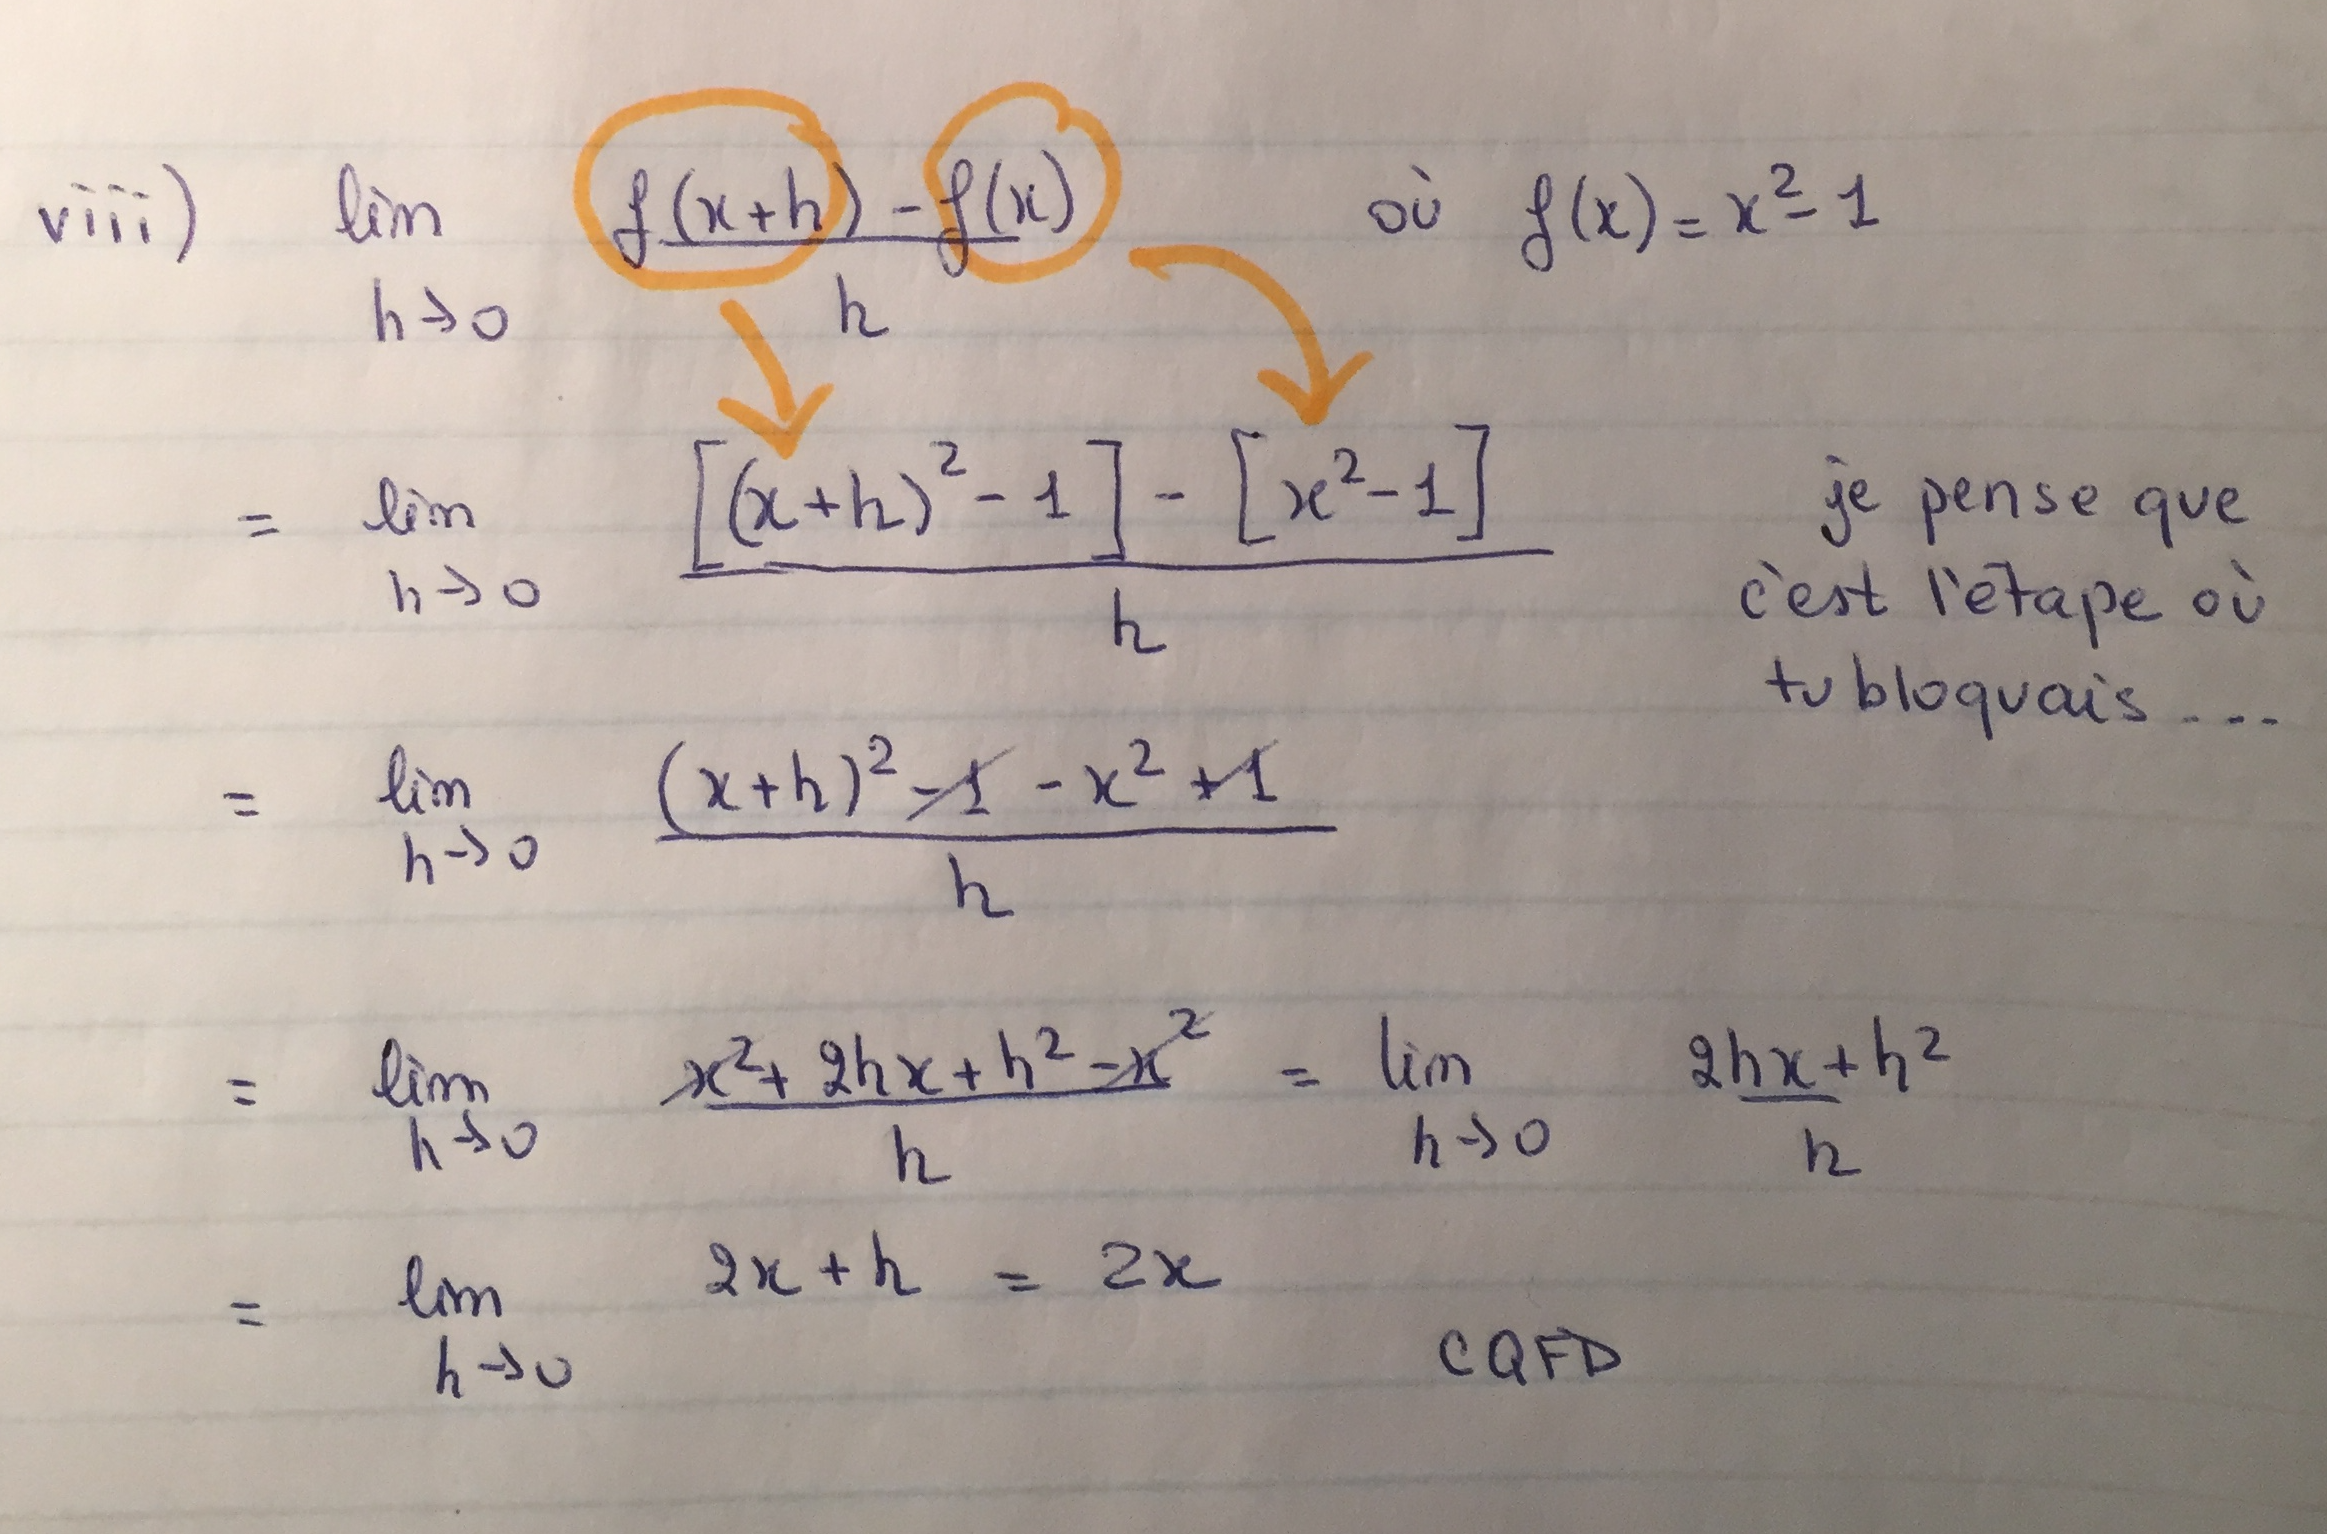 viii) lim h→0 f(x+h) - f(x) / h où f(x) = x² - 1
= lim h→0 [(x+h)² - 1] - [x² - 1] / h
je pense que
c'est l'étape où
tu bloquais ...
= lim h→0 (x+h)² - 1 - x² + 1 / h
= lim h→0 x² + 2hx + h² - x² / h = lim h→0 2hx + h² / h
= lim h→0 2x + h = 2x
CQFD